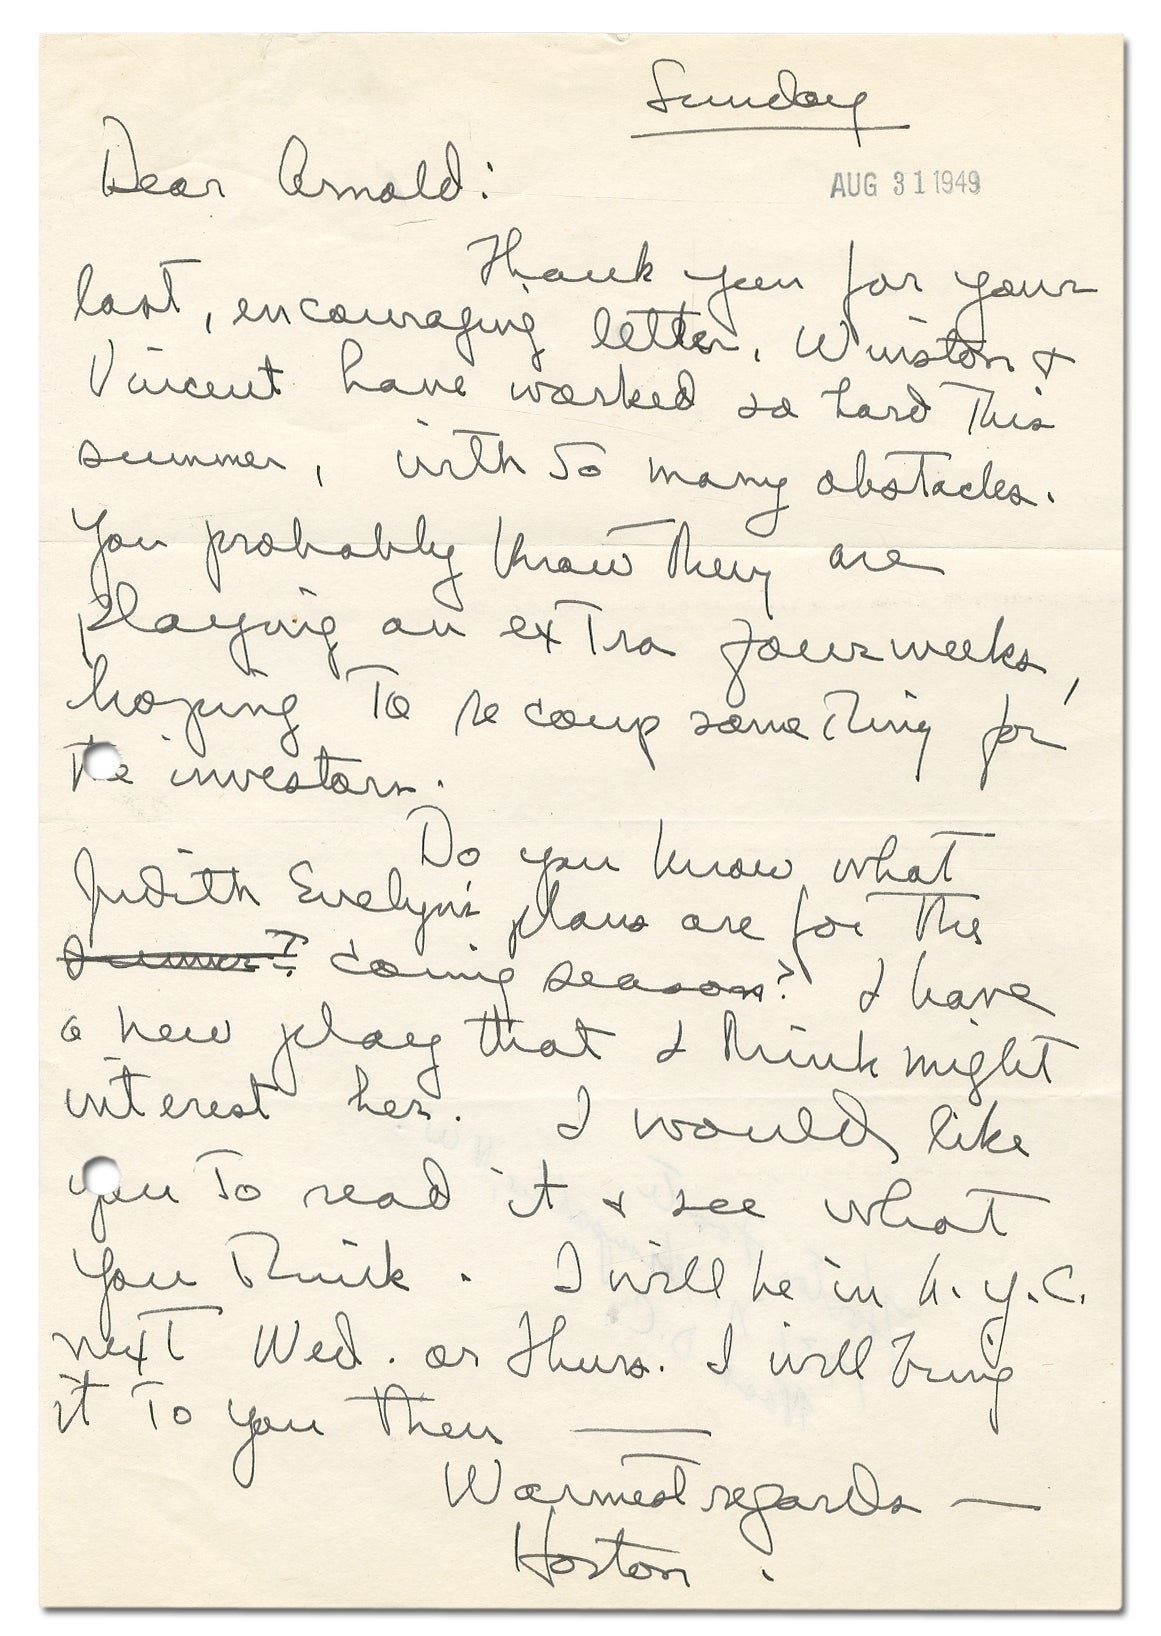 Sunday
Dear Arnold:
AUG 31 1949
Thank you for your
last, encouraging letter. Winston &
Vincent have worked so hard this
summer, with so many obstacles.
You probably know they are
playing an extra four weeks,
hoping to recoup something for
the investors.
Do you know what
Judith Evelyn's plans are for the
summer? coming season? I have
a new play that I think might
interest her. I would like
you to read it & see what
you think. I will be in N.Y.C.
next Wed. or Thurs. I will bring
it to you then —
Warmest regards —
Horton.